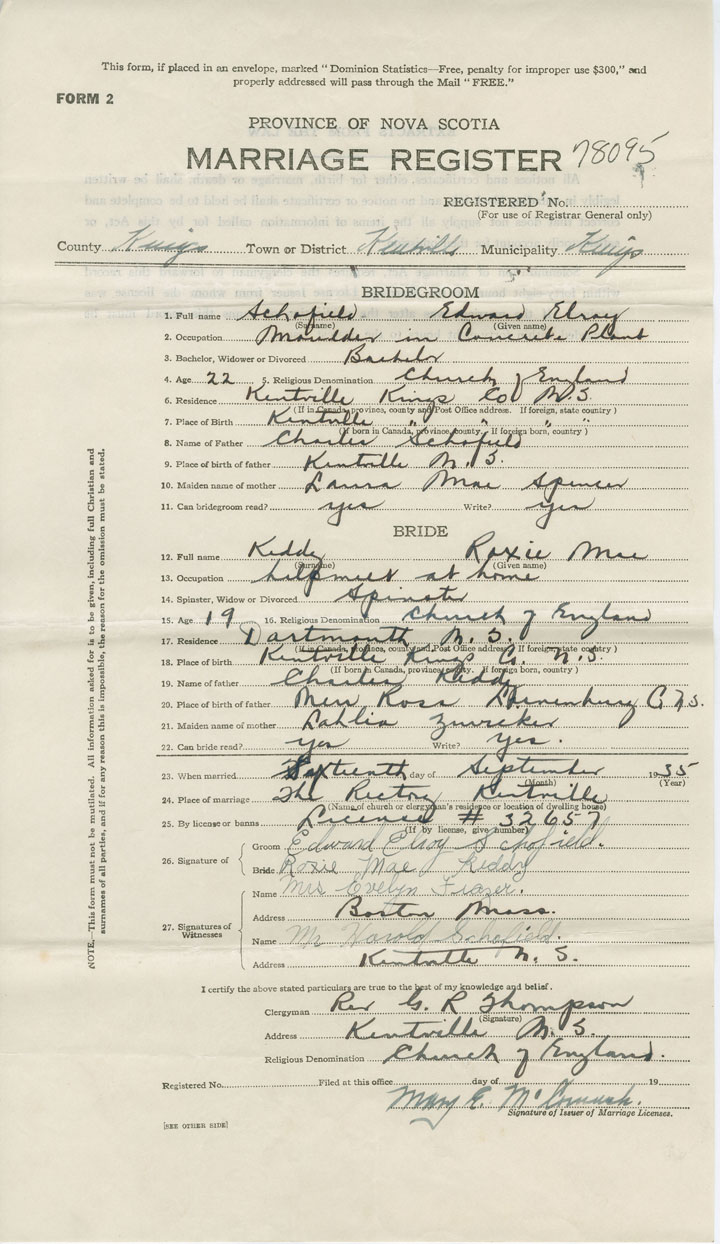 This form, if placed in an envelope, marked "Dominion Statistics—Free, penalty for improper use $300," and
properly addressed will pass through the Mail "FREE."
FORM 2
PROVINCE OF NOVA SCOTIA
MARRIAGE REGISTER 78095
REGISTERED No.
(For use of Registrar General only)
County Kings Town or District Kentville Municipality Kings
BRIDEGROOM
1. Full name Schofield Edward Elroy
(Surname) (Given name)
2. Occupation Moulder in Concrete Plant
3. Bachelor, Widower or Divorced Bachelor
4. Age 22 5. Religious Denomination Church of England
6. Residence Kentville Kings Co N.S.
(If in Canada, province, county and Post Office address. If foreign, state country)
7. Place of Birth Kentville " " "
(If born in Canada, province, county. If foreign born, country)
8. Name of Father Charles Schofield
9. Place of birth of father Kentville N.S.
10. Maiden name of mother Laura Mae Spencer
11. Can bridegroom read? yes Write? yes
BRIDE
12. Full name Keddy Roxie Mae
(Surname) (Given name)
13. Occupation helpmeet at home
14. Spinster, Widow or Divorced Spinster
15. Age 19 16. Religious Denomination Church of England
17. Residence Dartmouth N.S.
(If in Canada, province, county and Post Office address. If foreign, state country)
18. Place of birth Kentville Kings Co. N.S.
(If born in Canada, province, county. If foreign born, country)
19. Name of father Charles Keddy
20. Place of birth of father New Ross Lunenburg C N.S.
21. Maiden name of mother Dahlia Zwicker
22. Can bride read? yes Write? yes.
23. When married Sixteenth day of September 1935
(Month) (Year)
24. Place of marriage The Rectory Kentville
(Name of church or clergyman's residence or location of dwelling house)
25. By license or banns License # 32657
(If by license, give number)
26. Signature of
Groom Edward Elroy Schofield.
Bride Roxie Mae Keddy
27. Signatures of Witnesses
Name Mrs Evelyn Frazer.
Address Boston Mass.
Name Mr Harold Schofield.
Address Kentville N.S.
I certify the above stated particulars are true to the best of my knowledge and belief.
Clergyman Rev G. R Thompson
(Signature)
Address Kentville N.S.
Religious Denomination Church of England.
Registered No. Filed at this office day of 19
Mary E. McCormack.
Signature of Issuer of Marriage Licenses.
[SEE OTHER SIDE]
NOTE.—This form must not be mutilated. All information asked for is to be given, including full Christian and
surnames of all parties, and if for any reason this is impossible, the reason for the omission must be stated.